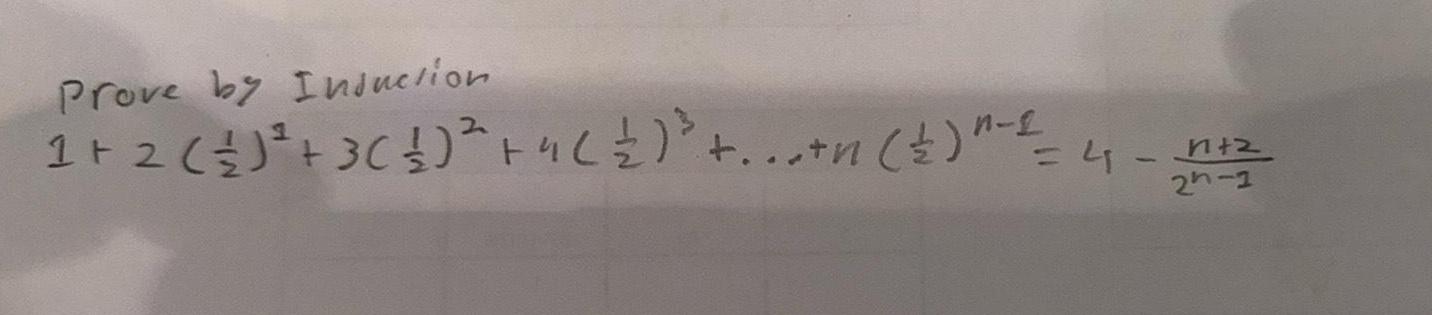 Prove by Induction
1 + 2 (1/2)^1 + 3(1/2)^2 + 4(1/2)^3 + ... + n (1/2)^{n-1} = 4 - \frac{n+2}{2^{n-1}}